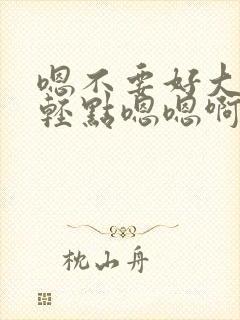 嗯不要好大
輕點嗯嗯啊
枕山舟